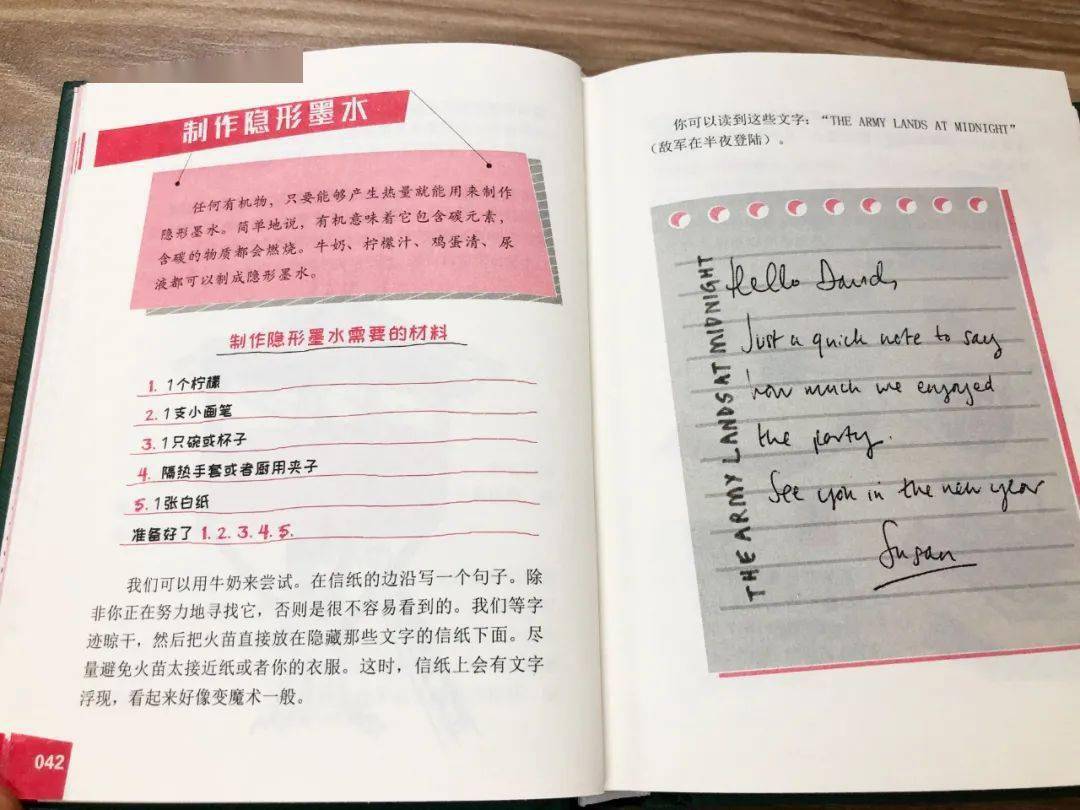 制作隐形墨水
任何有机物，只要能够产生热量就能用来制作
隐形墨水。简单地说，有机意味着它包含碳元素，
含碳的物质都会燃烧。牛奶、柠檬汁、鸡蛋清、尿
液都可以制成隐形墨水。
制作隐形墨水需要的材料
1. 1个柠檬
2. 1支小画笔
3. 1只碗或杯子
4. 隔热手套或者厨用夹子
5. 1张白纸
准备好了 1. 2. 3. 4. 5.
我们可以用牛奶来尝试。在信纸的边沿写一个句子。除
非你正在努力地寻找它，否则是很不容易看到的。我们等字
迹晾干，然后把火苗直接放在隐藏那些文字的信纸下面。尽
量避免火苗太接近纸或者你的衣服。这时，信纸上会有文字
浮现，看起来好像变魔术一般。
042
你可以读到这些文字：“THE ARMY LANDS AT MIDNIGHT”
（敌军在半夜登陆）。
THE ARMY LANDS AT MIDNIGHT
Hello David,
Just a quick note to say
how much we enjoyed
the party.
See you in the new year
Susan